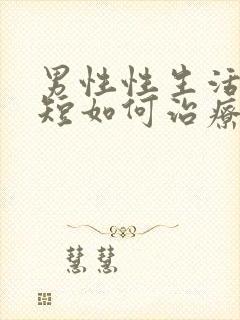 男性性生活
短如何治療
慧慧